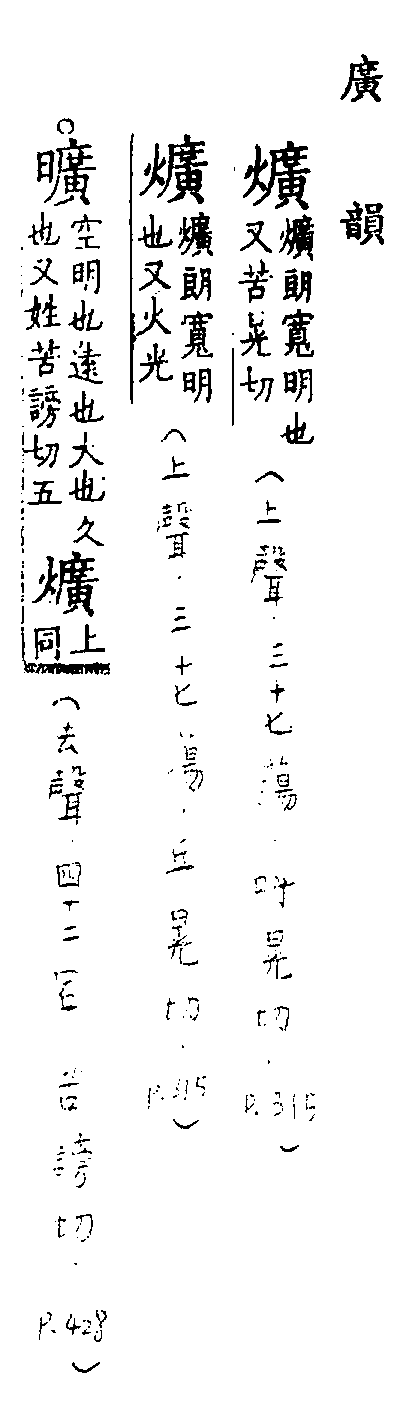 廣韻
爌爌朗寬明也又苦晃切(上聲.三十七蕩.呼晃切.P.315)
爌爌朗寬明也又火光(上聲.三十七蕩.丘晃切.P.315)
○曠空明也遠也大也久也又姓苦謗切五爌上同(去聲.四十二宕 苦謗切.P.428)